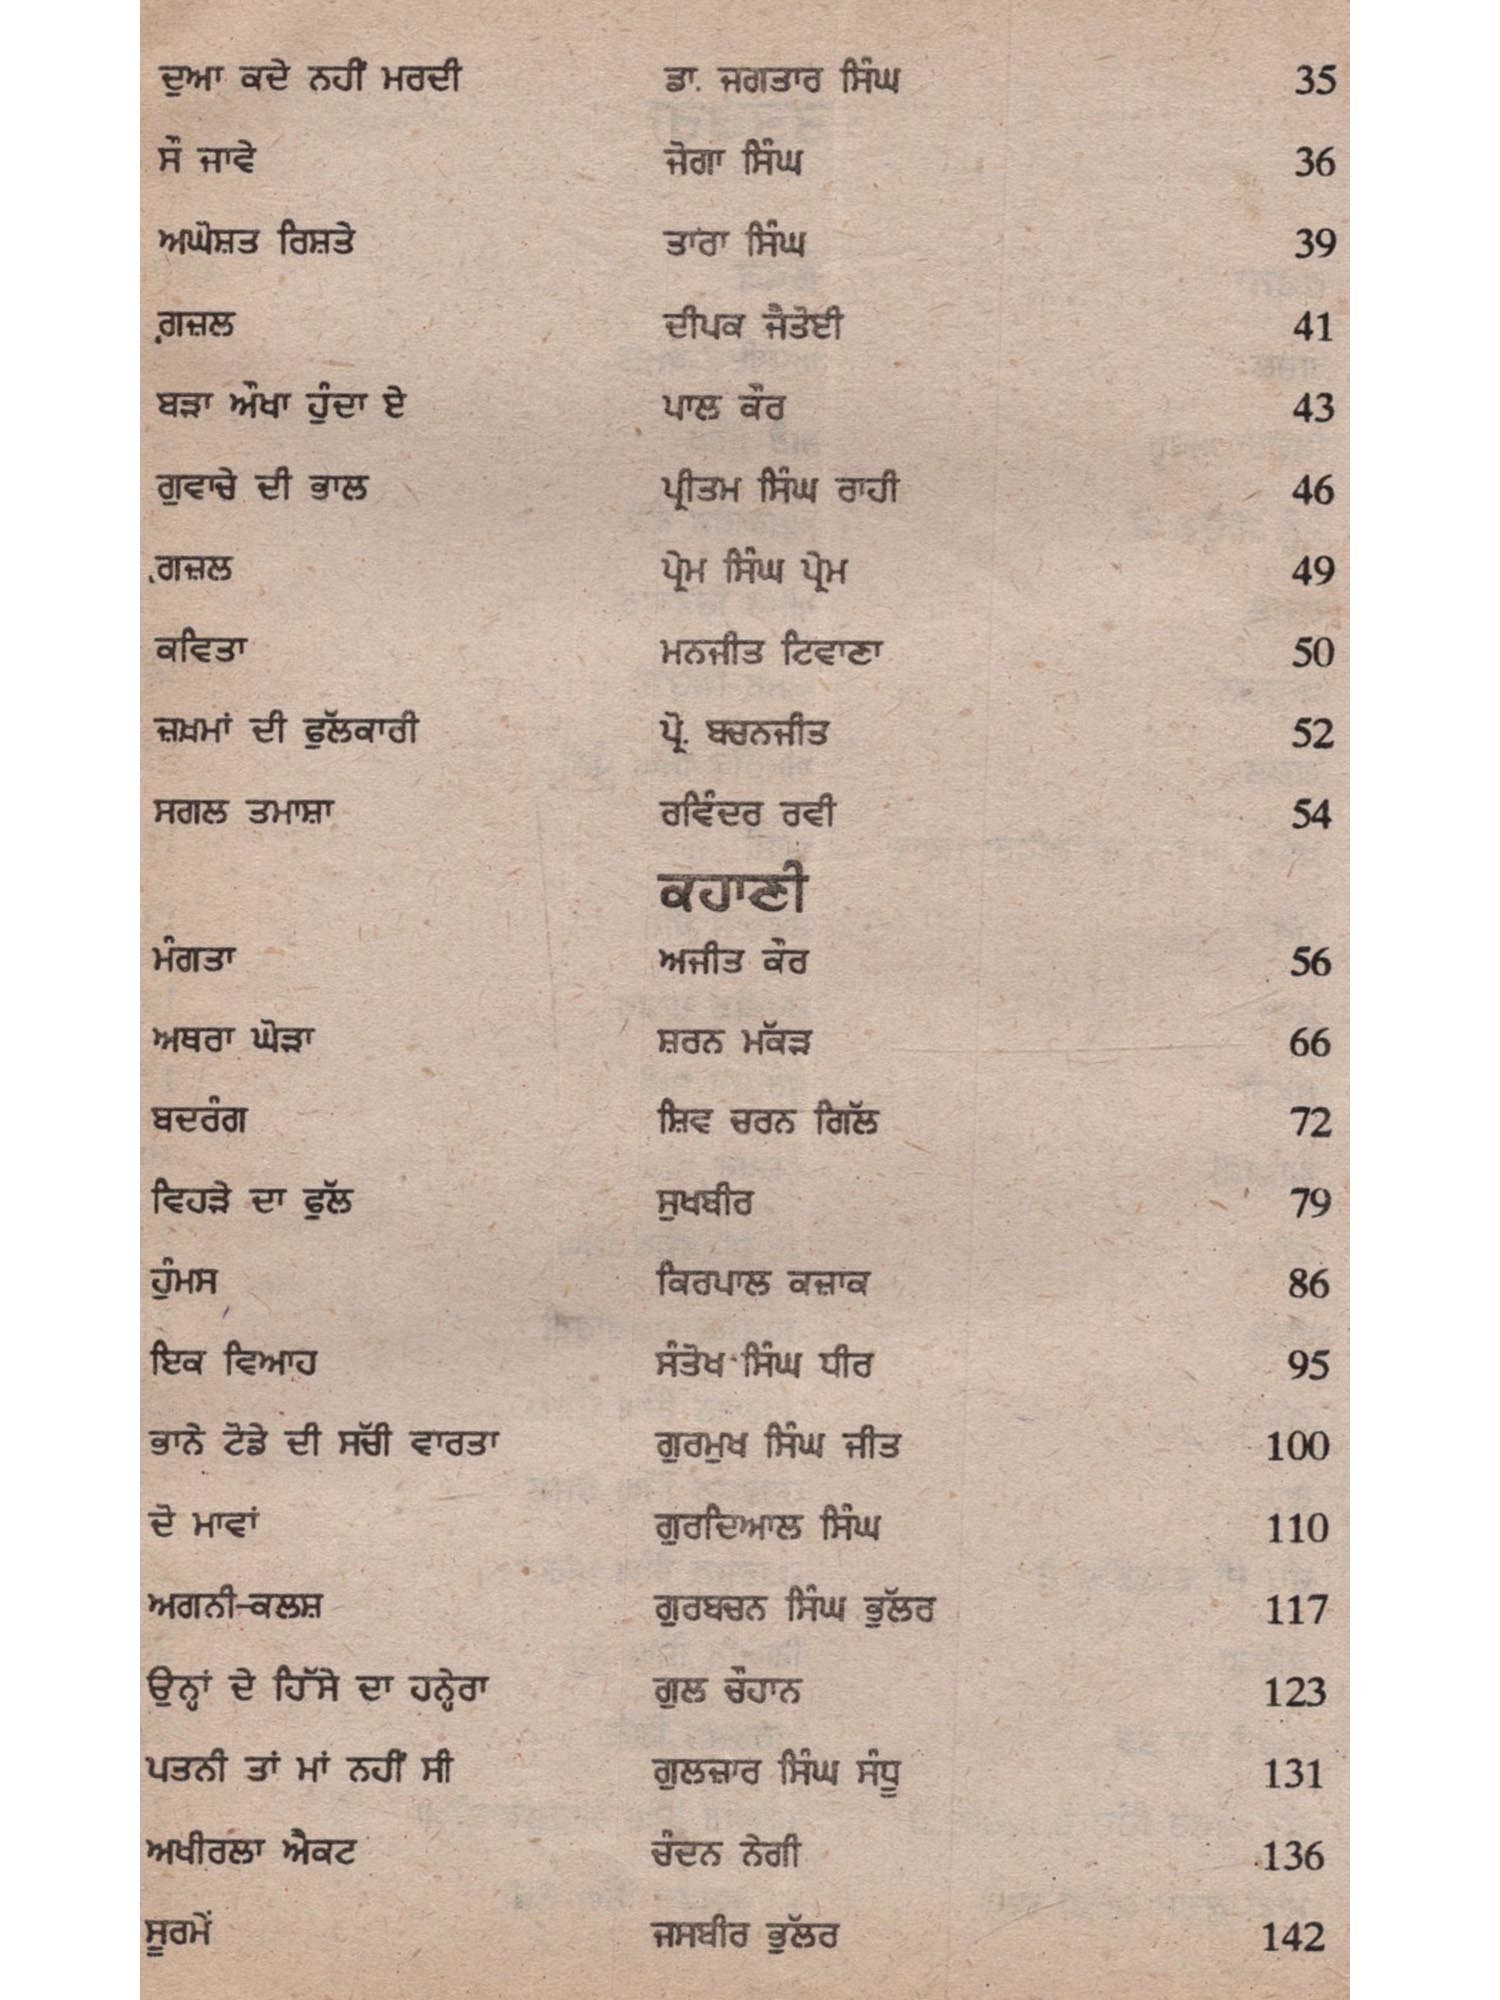 ਦੁਆ ਕਦੇ ਨਹੀਂ ਮਰਦੀ ਡਾ. ਜਗਤਾਰ ਸਿੰਘ 35
ਸੌਂ ਜਾਵੇ ਜੋਗਾ ਸਿੰਘ 36
ਅਘੋਸ਼ਤ ਰਿਸ਼ਤੇ ਤਾਰਾ ਸਿੰਘ 39
ਗ਼ਜ਼ਲ ਦੀਪਕ ਜੈਤੋਈ 41
ਬੜਾ ਔਖਾ ਹੁੰਦਾ ਏ ਪਾਲ ਕੌਰ 43
ਗੁਵਾਚੇ ਦੀ ਭਾਲ ਪ੍ਰੀਤਮ ਸਿੰਘ ਰਾਹੀ 46
ਗ਼ਜ਼ਲ ਪ੍ਰੇਮ ਸਿੰਘ ਪ੍ਰੇਮ 49
ਕਵਿਤਾ ਮਨਜੀਤ ਟਿਵਾਣਾ 50
ਜ਼ਖ਼ਮਾਂ ਦੀ ਫੁੱਲਕਾਰੀ ਪ੍ਰੋ. ਬਚਨਜੀਤ 52
ਸਗਲ ਤਮਾਸ਼ਾ ਰਵਿੰਦਰ ਰਵੀ 54
ਕਹਾਣੀ
ਮੰਗਤਾ ਅਜੀਤ ਕੌਰ 56
ਅਥਰਾ ਘੋੜਾ ਸ਼ਰਨ ਮਕੱੜ 66
ਬਦਰੰਗ ਸ਼ਿਵ ਚਰਨ ਗਿੱਲ 72
ਵਿਹੜੇ ਦਾ ਫੁੱਲ ਸੁਖਬੀਰ 79
ਹੁੰਮਸ ਕਿਰਪਾਲ ਕਜ਼ਾਕ 86
ਇਕ ਵਿਆਹ ਸੰਤੋਖ ਸਿੰਘ ਧੀਰ 95
ਭਾਨੇ ਟੋਡੇ ਦੀ ਸਚੱੀ ਵਾਰਤਾ ਗੁਰਮੁਖ ਸਿੰਘ ਜੀਤ 100
ਦੋ ਮਾਵਾਂ ਗੁਰਦਿਆਲ ਸਿੰਘ 110
ਅਗਨੀ-ਕਲਸ਼ ਗੁਰਬਚਨ ਸਿੰਘ ਭੁੱਲਰ 117
ਉਨ੍ਹਾਂ ਦੇ ਹਿੱਸੇ ਦਾ ਹਨ੍ਹੇਰਾ ਗੁਲ ਚੌਹਾਨ 123
ਪਤਨੀ ਤਾਂ ਮਾਂ ਨਹੀਂ ਸੀ ਗੁਲਜ਼ਾਰ ਸਿੰਘ ਸੰਧੂ 131
ਅਖੀਰਲਾ ਐਕਟ ਚੰਦਨ ਨੇਗੀ 136
ਸੂਰਮੇਂ ਜਸਬੀਰ ਭੁੱਲਰ 142